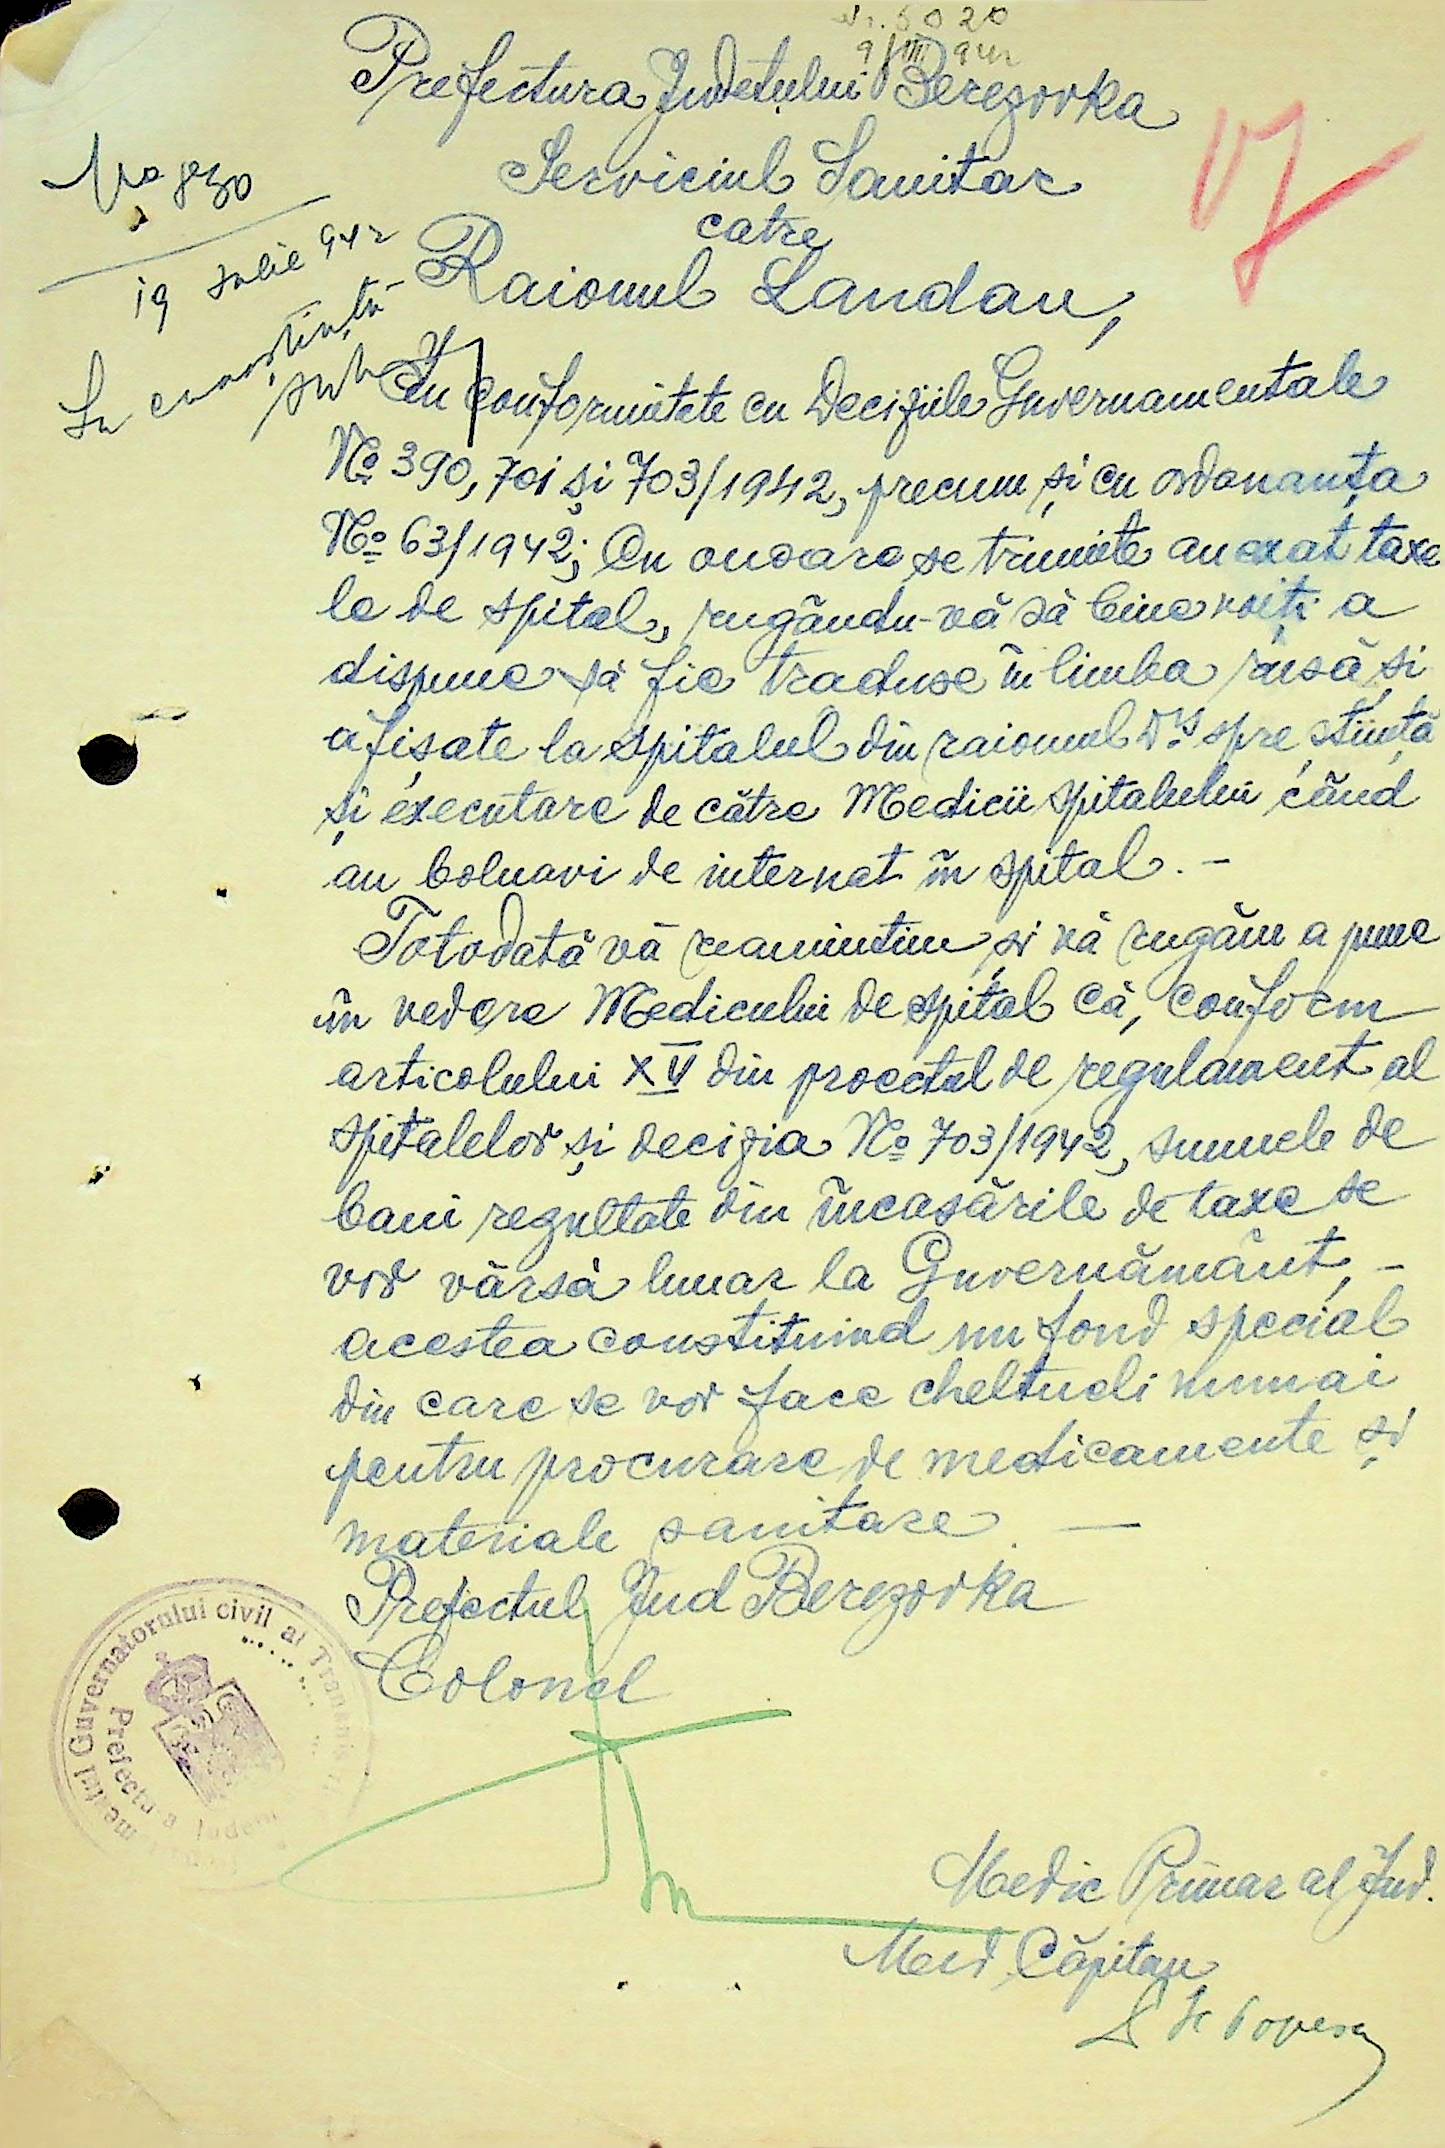 Nr. 5020
9/VIII 942
Prefectura Județului Berezovka
Serviciul Sanitar
catre
Raionul Landau,
No 
19 Iulie 942
În conformitete cu Deciziile Guvernamentale
No 390, 701 și 703/1942, precum și cu ordonanța
No 63/1942; Cu onoare se trimite anexat taxe
le de spital, rugându-vă să bine voiți a
dispune să fie traduse în limba rusă și
afișate la spitalul din raionul Dvs spre știință
și executare de către Medicii spitalului când
au bolnavi de internat în spital. –
Totodată vă reamintim și vă rugăm a pune
în vedere Medicului de spital că, conform
articolului XV din proectul de regulament al
spitalelor și decizia No 703/1942, sumele de
bani rezultate din încasările de taxe se
vor vărsà lunar la Guvernământ, –
acestea constituind un fond special
din care se vor face cheltueli numai
pentru procurare de medicamente și
materiale sanitare. —
Prefectul Jud Berezovka
Colonel
Guvernatorului civil al
Prefectura
Medic Primar al Jud.
Med. Căpitan
Popescu